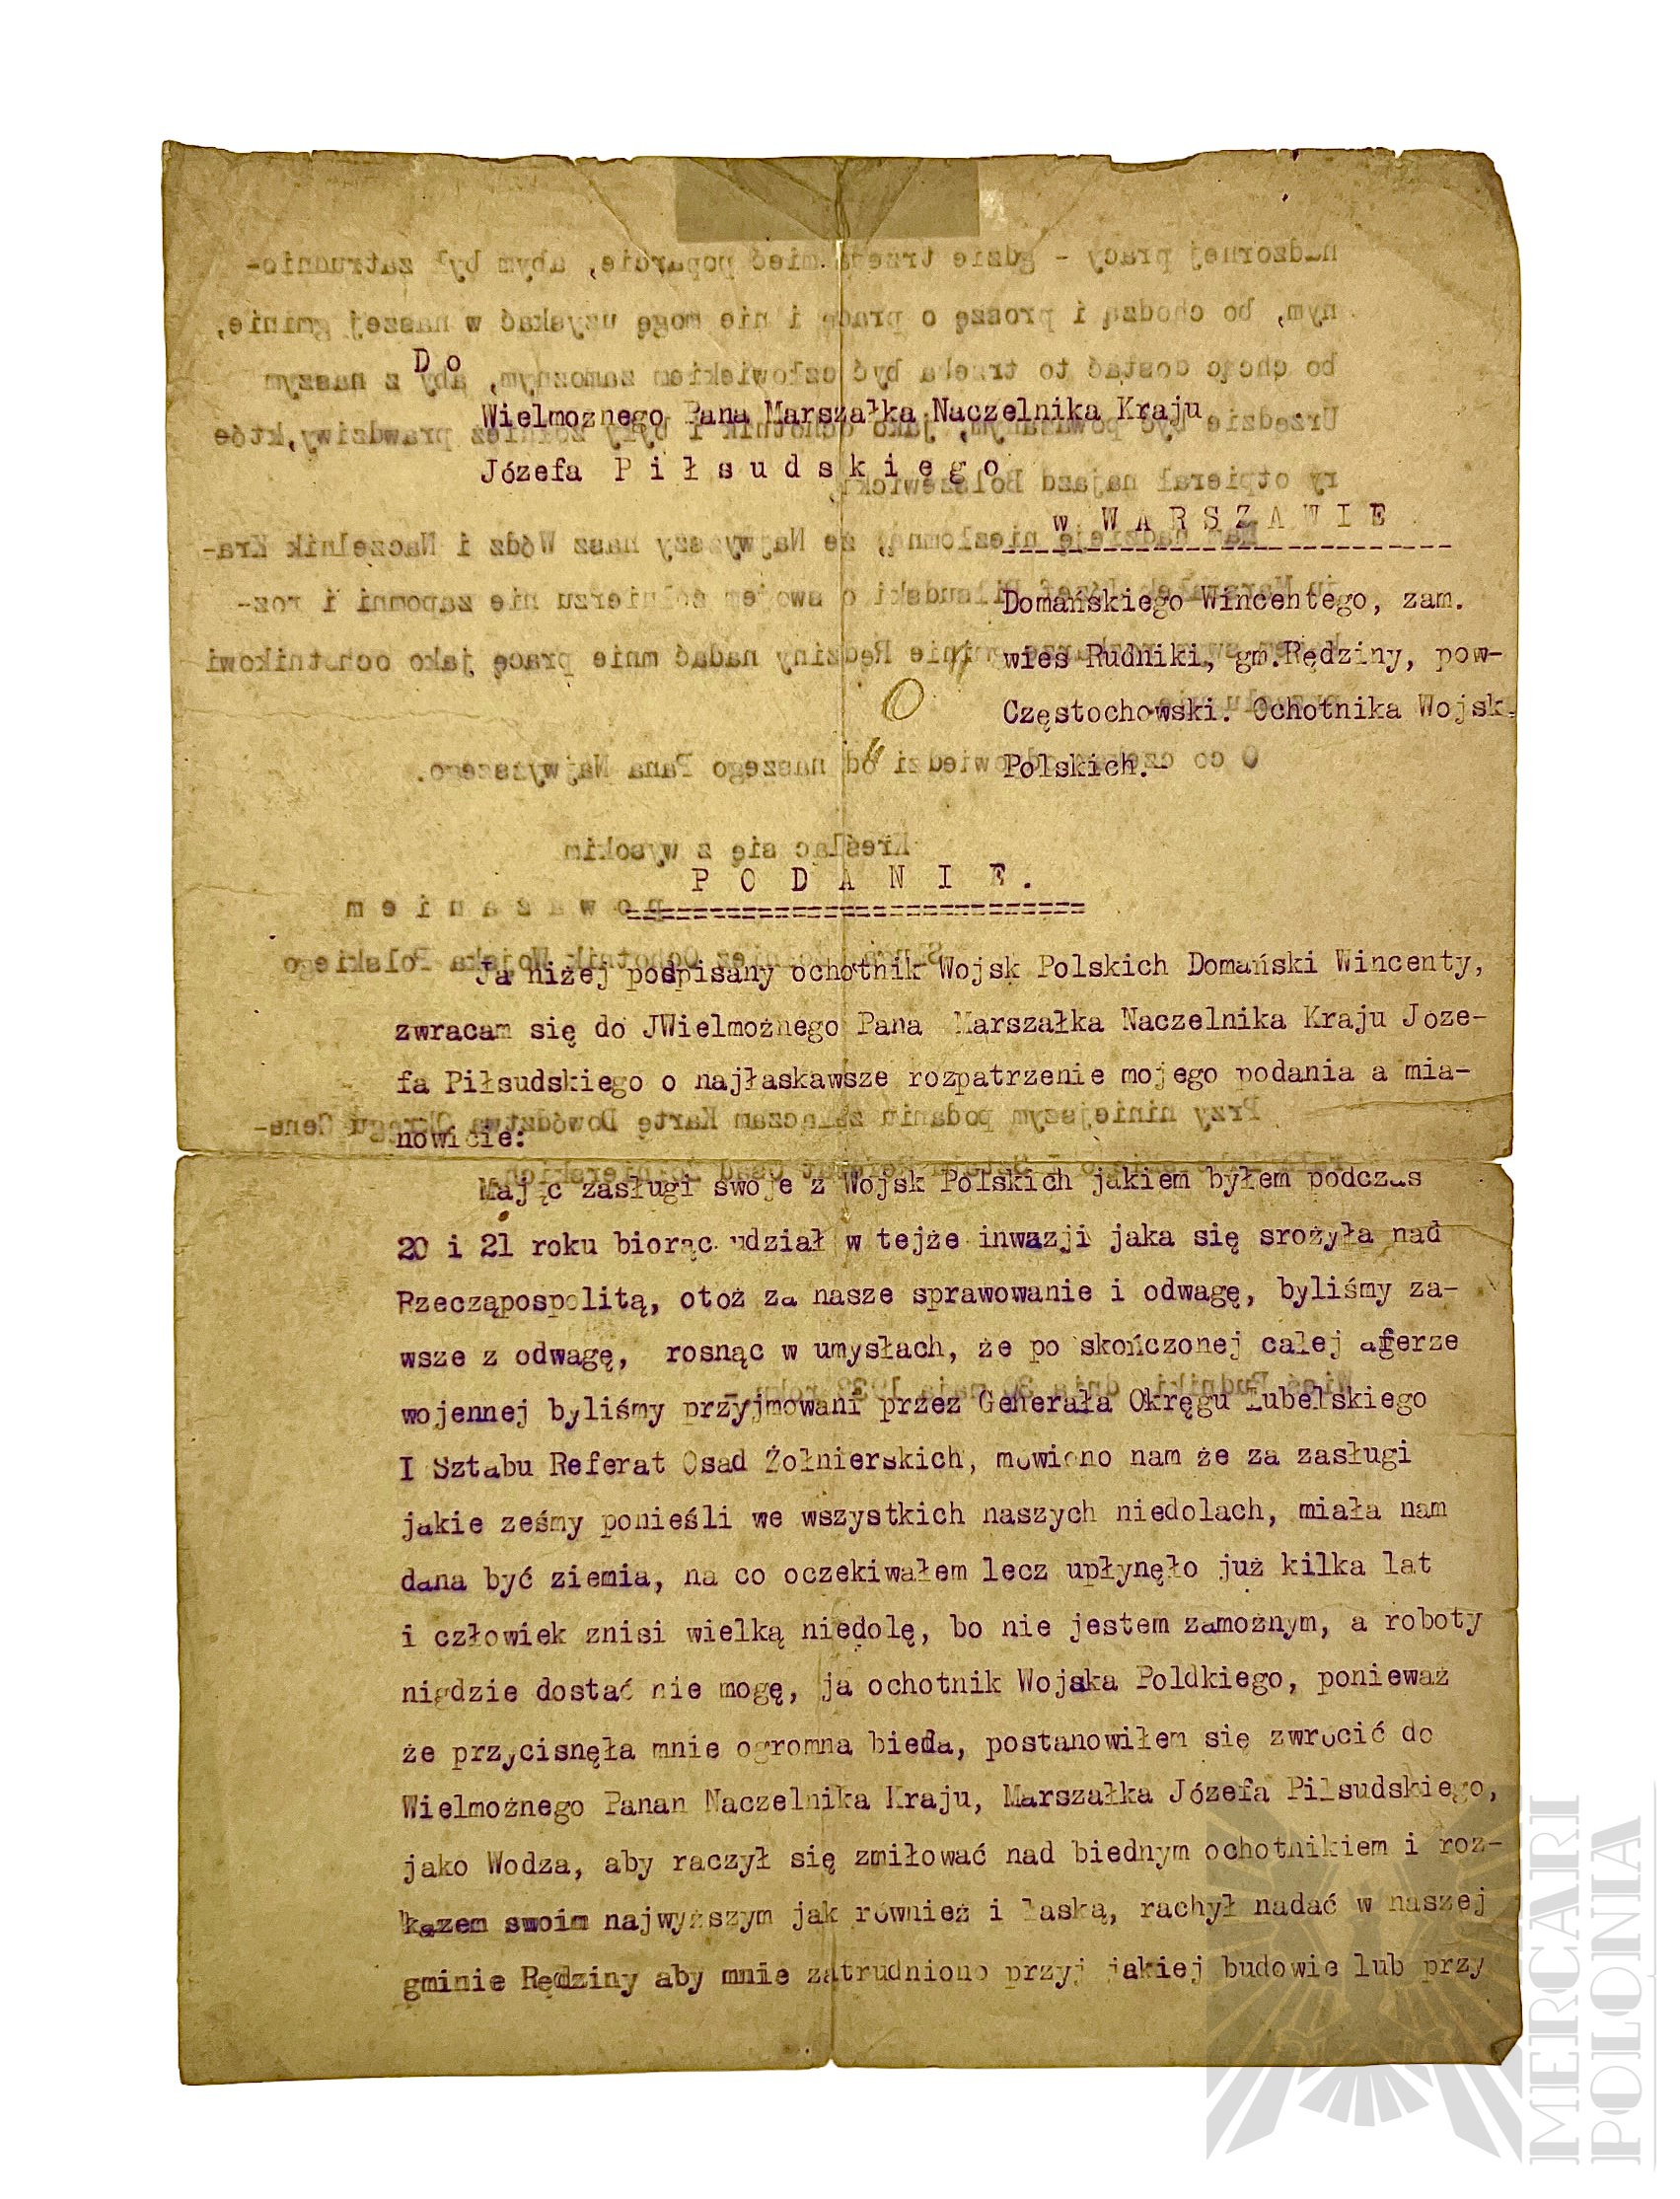 Do
Wielmożnego Pana Marszałka Naczelnika Kraju
Józefa Piłsudskiego
w WARSZAWIE
Domańskiego Wincentego, zam.
wieś Rudniki, gm.Rędziny, pow-
Częstochowski. Ochotnika Wojsk.
Polskich.-
PODANIE.
Ja niżej podpisany ochotnik Wojsk Polskich Domański Wincenty,
zwracam się do JWielmożnego Pana Marszałka Naczelnika Kraju Joze-
fa Piłsudskiego o najłaskawsze rozpatrzenie mojego podania a mia-
nowicie:
Mając zasługi swoje z Wojsk Polskich jakiem byłem podczas
20 i 21 roku biorąc udział w tejże inwazji jaka się srożyła nad
Rzecząpospolitą, otoż za nasze sprawowanie i odwagę, byliśmy za-
wsze z odwagę, rosnąc w umysłach, że po skończonej całej aferze
wojennej byliśmy przyjmowani przez Generała Okręgu Lubelskiego
I Sztabu Referat Osad Żołnierskich, mowiono nam że za zasługi
jakie ześmy ponieśli we wszystkich naszych niedolach, miała nam
dana być ziemia, na co oczekiwałem lecz upłynęło już kilka lat
i człowiek znisi wielką niedolę, bo nie jestem zamożnym, a roboty
nigdzie dostać nie mogę, ja ochotnik Wojska Poldkiego, ponieważ
że przycisnęła mnie ogromna bieda, postanowiłem się zwrócić do
Wielmożnego Panan Naczelnika Kraju, Marszałka Józefa Pilsudskiego,
jako Wodza, aby raczył się zmiłować nad biednym ochotnikiem i roz-
kazem swoim najwyższym jak również i łaską, rachył nadać w naszej
gminie Rędziny aby mnie zatrudniono przyj jakiej budowie lub przy
MERCARI
POLONIA